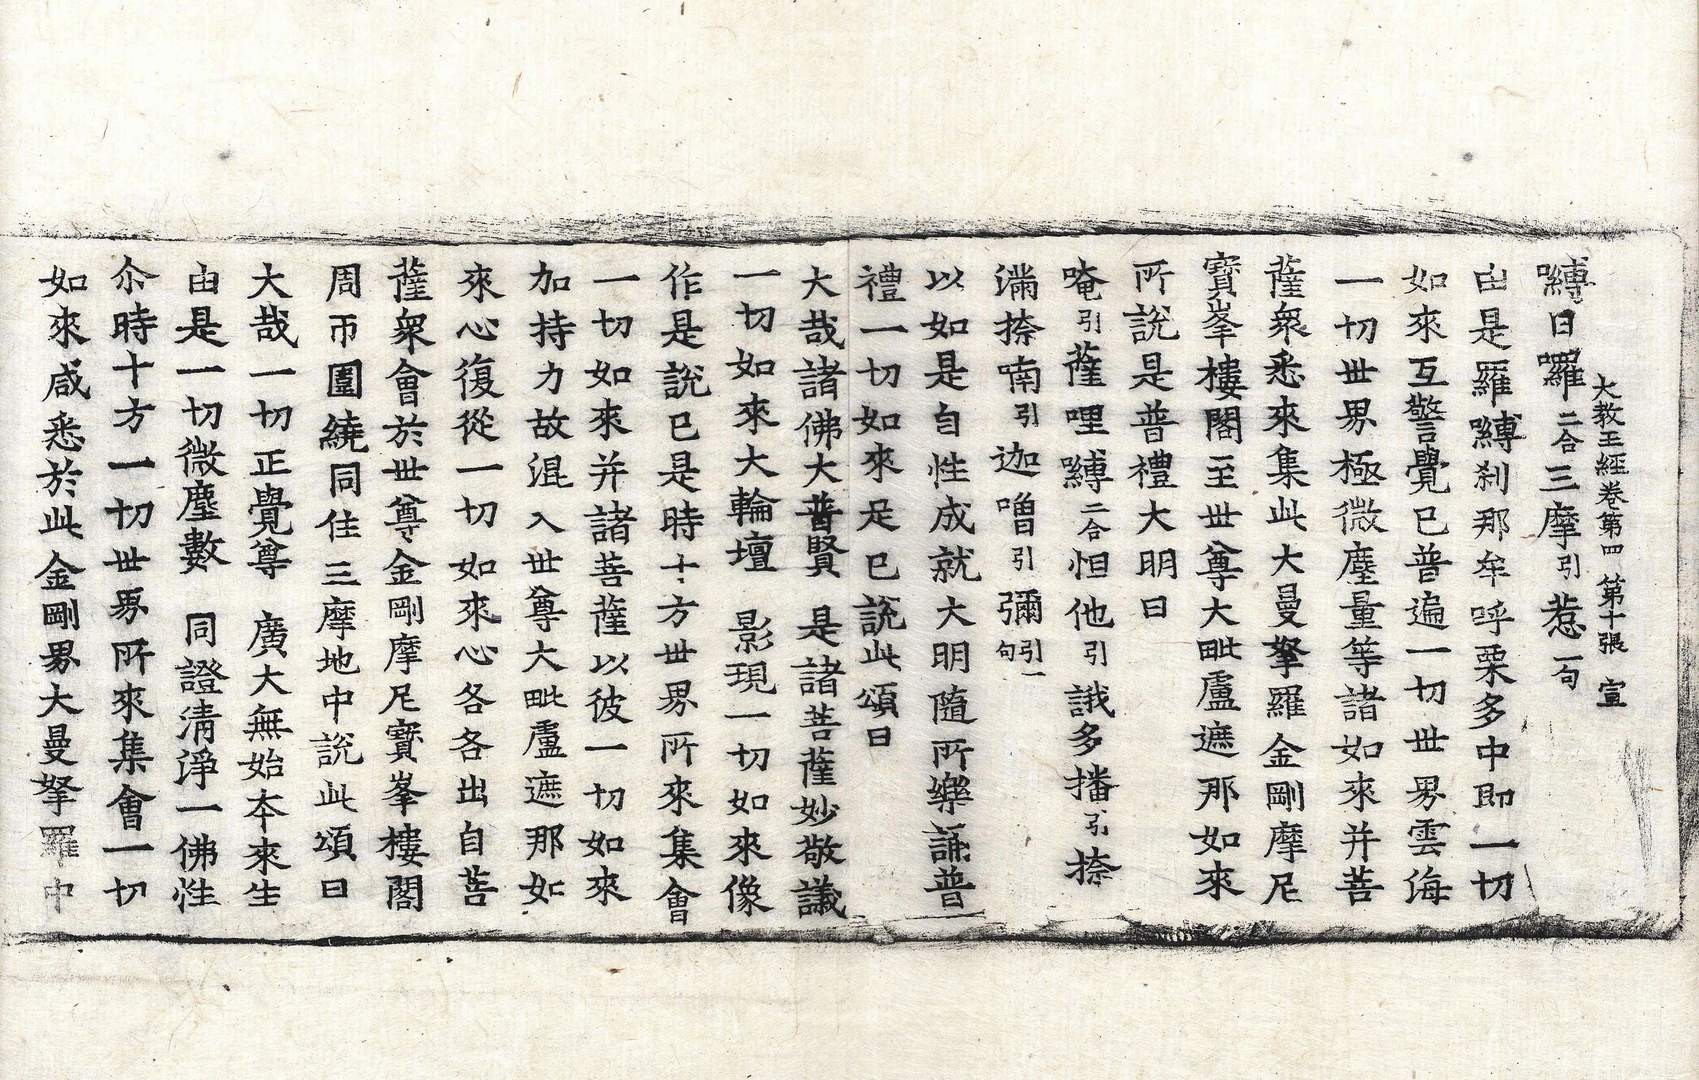 大教王經卷第四 第十張 宣
嚩日囉二合三摩引惹一句
由是羅嚩刹那牟呼栗多中即一切
如來互警覺已普遍一切世界雲海
一切世界極微塵量等諸如來并菩
薩衆悉來集此大曼拏羅金剛摩尼
寶峯樓閣至世尊大毗盧遮那如來
所說是普禮大明曰
唵引薩哩嚩二合怛他引誐多播引捺
滿捺喃引迦嚕引彌引一句
以如是自性成就大明隨所樂誦普
禮一切如來足已說此頌曰
大哉諸佛大普賢 是諸菩薩妙敬議
一切如來大輪壇 影現一切如來像
作是說已是時十方世界所來集會
一切如來并諸菩薩以彼一切如來
加持力故混入世尊大毗盧遮那如
來心復從一切如來心各各出自菩
薩衆會於世尊金剛摩尼寶峯樓閣
周帀圍繞同住三摩地中說此頌曰
大哉一切正覺尊 廣大無始本來生
由是一切微塵數 同證清淨一佛性
尒時十方一切世界所來集會一切
如來咸悉於此金剛界大曼拏羅中